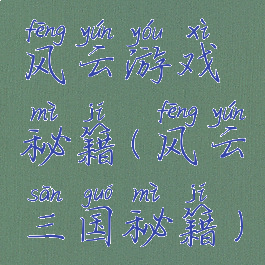 fēng yún yóu xì
风云游戏
mì jí fēng yún
秘籍(风云
sān guó mì jí
三国秘籍)